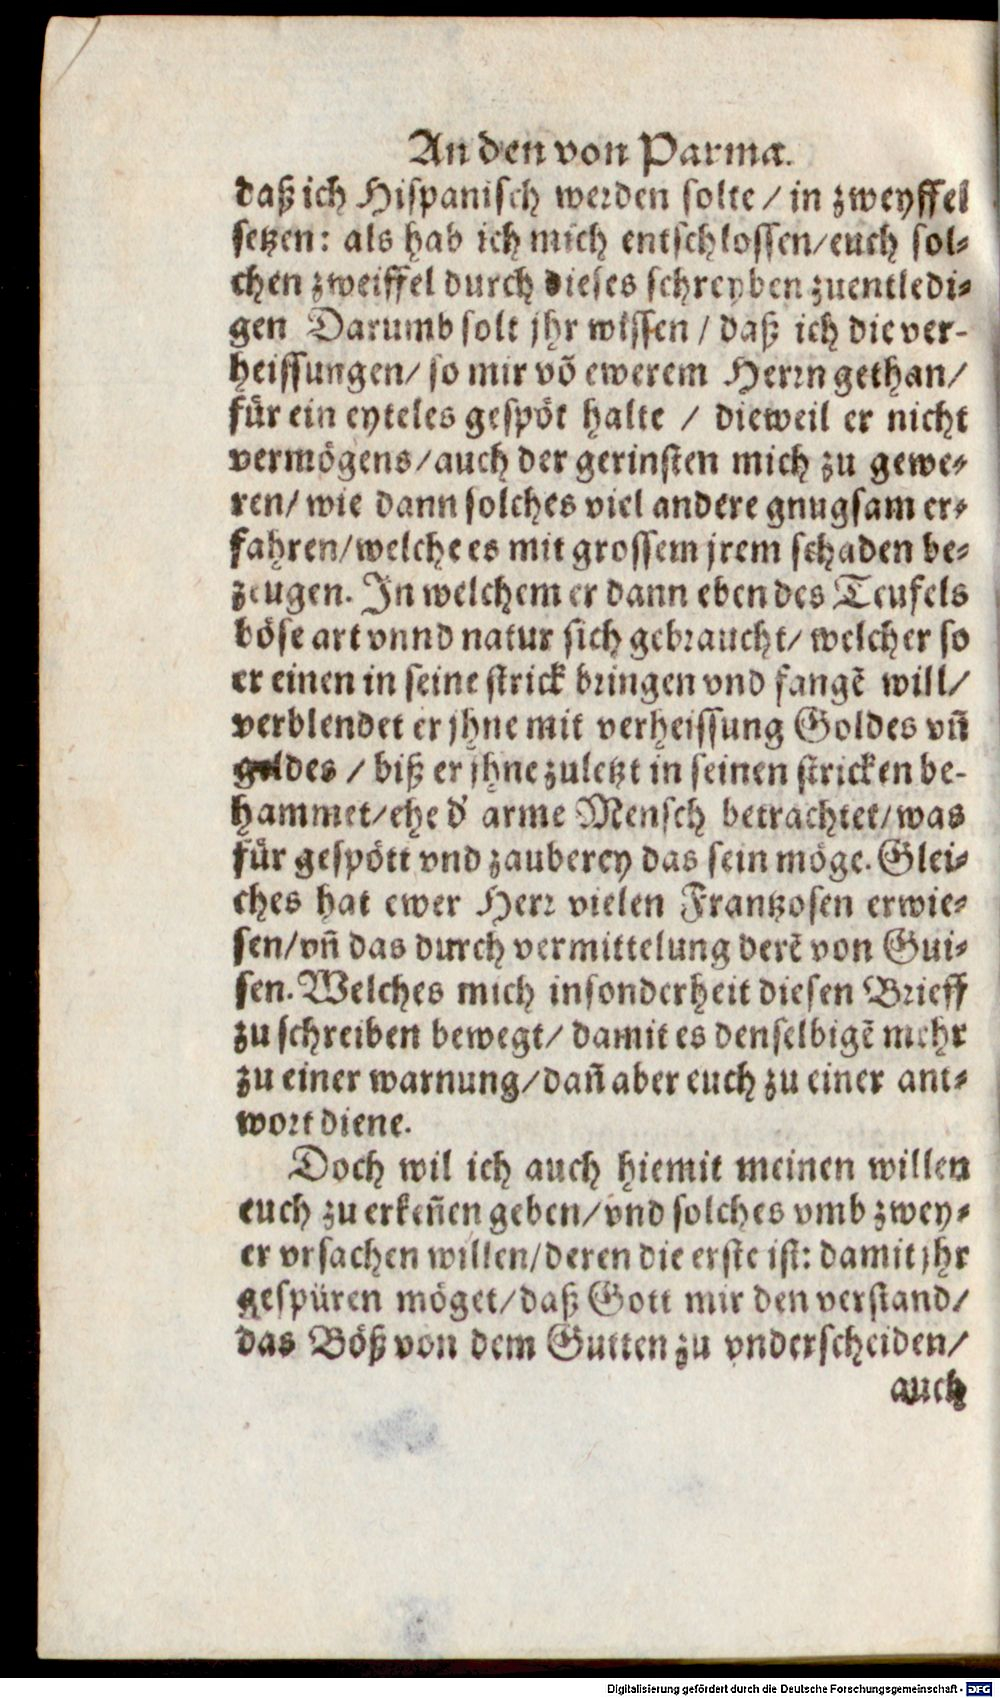 An den von Parma.
daß ich Hispanisch werden solte / in zweyffel
setzen: als hab ich mich entschlossen/euch sol⸗
chen zweiffel durch dieses schreyben zuentledi⸗
gen Darumb solt jhr wissen / daß ich die ver-
heissungen/ so mir võ ewerem Herrn gethan/
für ein eyteles gespöt halte / dieweil er nicht
vermögens/auch der gerinsten mich zu gewe⸗
ren/ wie dann solches viel andere gnugsam er⸗
fahren/welche es mit grossem jrem schaden be⸗
zeugen. In welchem er dann eben des Teufels
böse art vnnd natur sich gebraucht/ welcher so
er einen in seine strick bringen vnd fangẽ will/
verblendet er jhne mit verheissung Goldes vñ
geldes / biß er jhne zuletzt in seinen stricken be-
hammet/ehe d' arme Mensch betrachtet/was
für gespött vnd zauberey das sein möge. Glei⸗
ches hat ewer Herr vielen Frantzosen erwie⸗
sen/vñ das durch vermittelung derẽ von Gui⸗
sen. Welches mich insonderheit diesen Brieff
zu schreiben bewegt/ damit es denselbigẽ mehr
zu einer warnung/dañ aber euch zu einer ant⸗
wort diene.
Doch wil ich auch hiemit meinen willen
euch zu erkeñen geben/vnd solches vmb zwey⸗
er vrsachen willen/deren die erste ist: damit jhr
gespüren möget/daß Gott mir den verstand/
das Böß von dem Gutten zu vnderscheiden/
auch
Digitalisierung gefördert durch die Deutsche Forschungsgemeinschaft - DFG